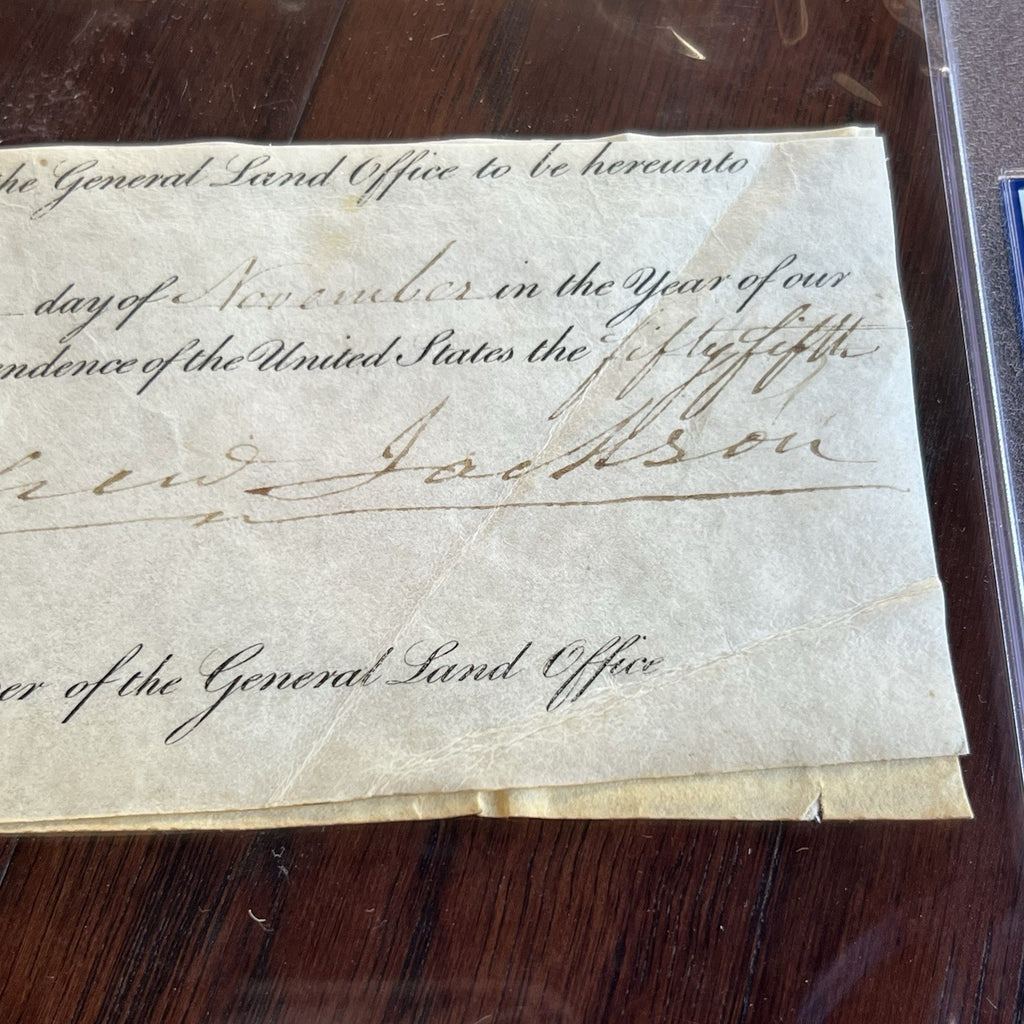 the General Land Office to be hereunto
day of November in the Year of our
ndence of the United States the fiftyfifth
hew Jackson
er of the General Land Office